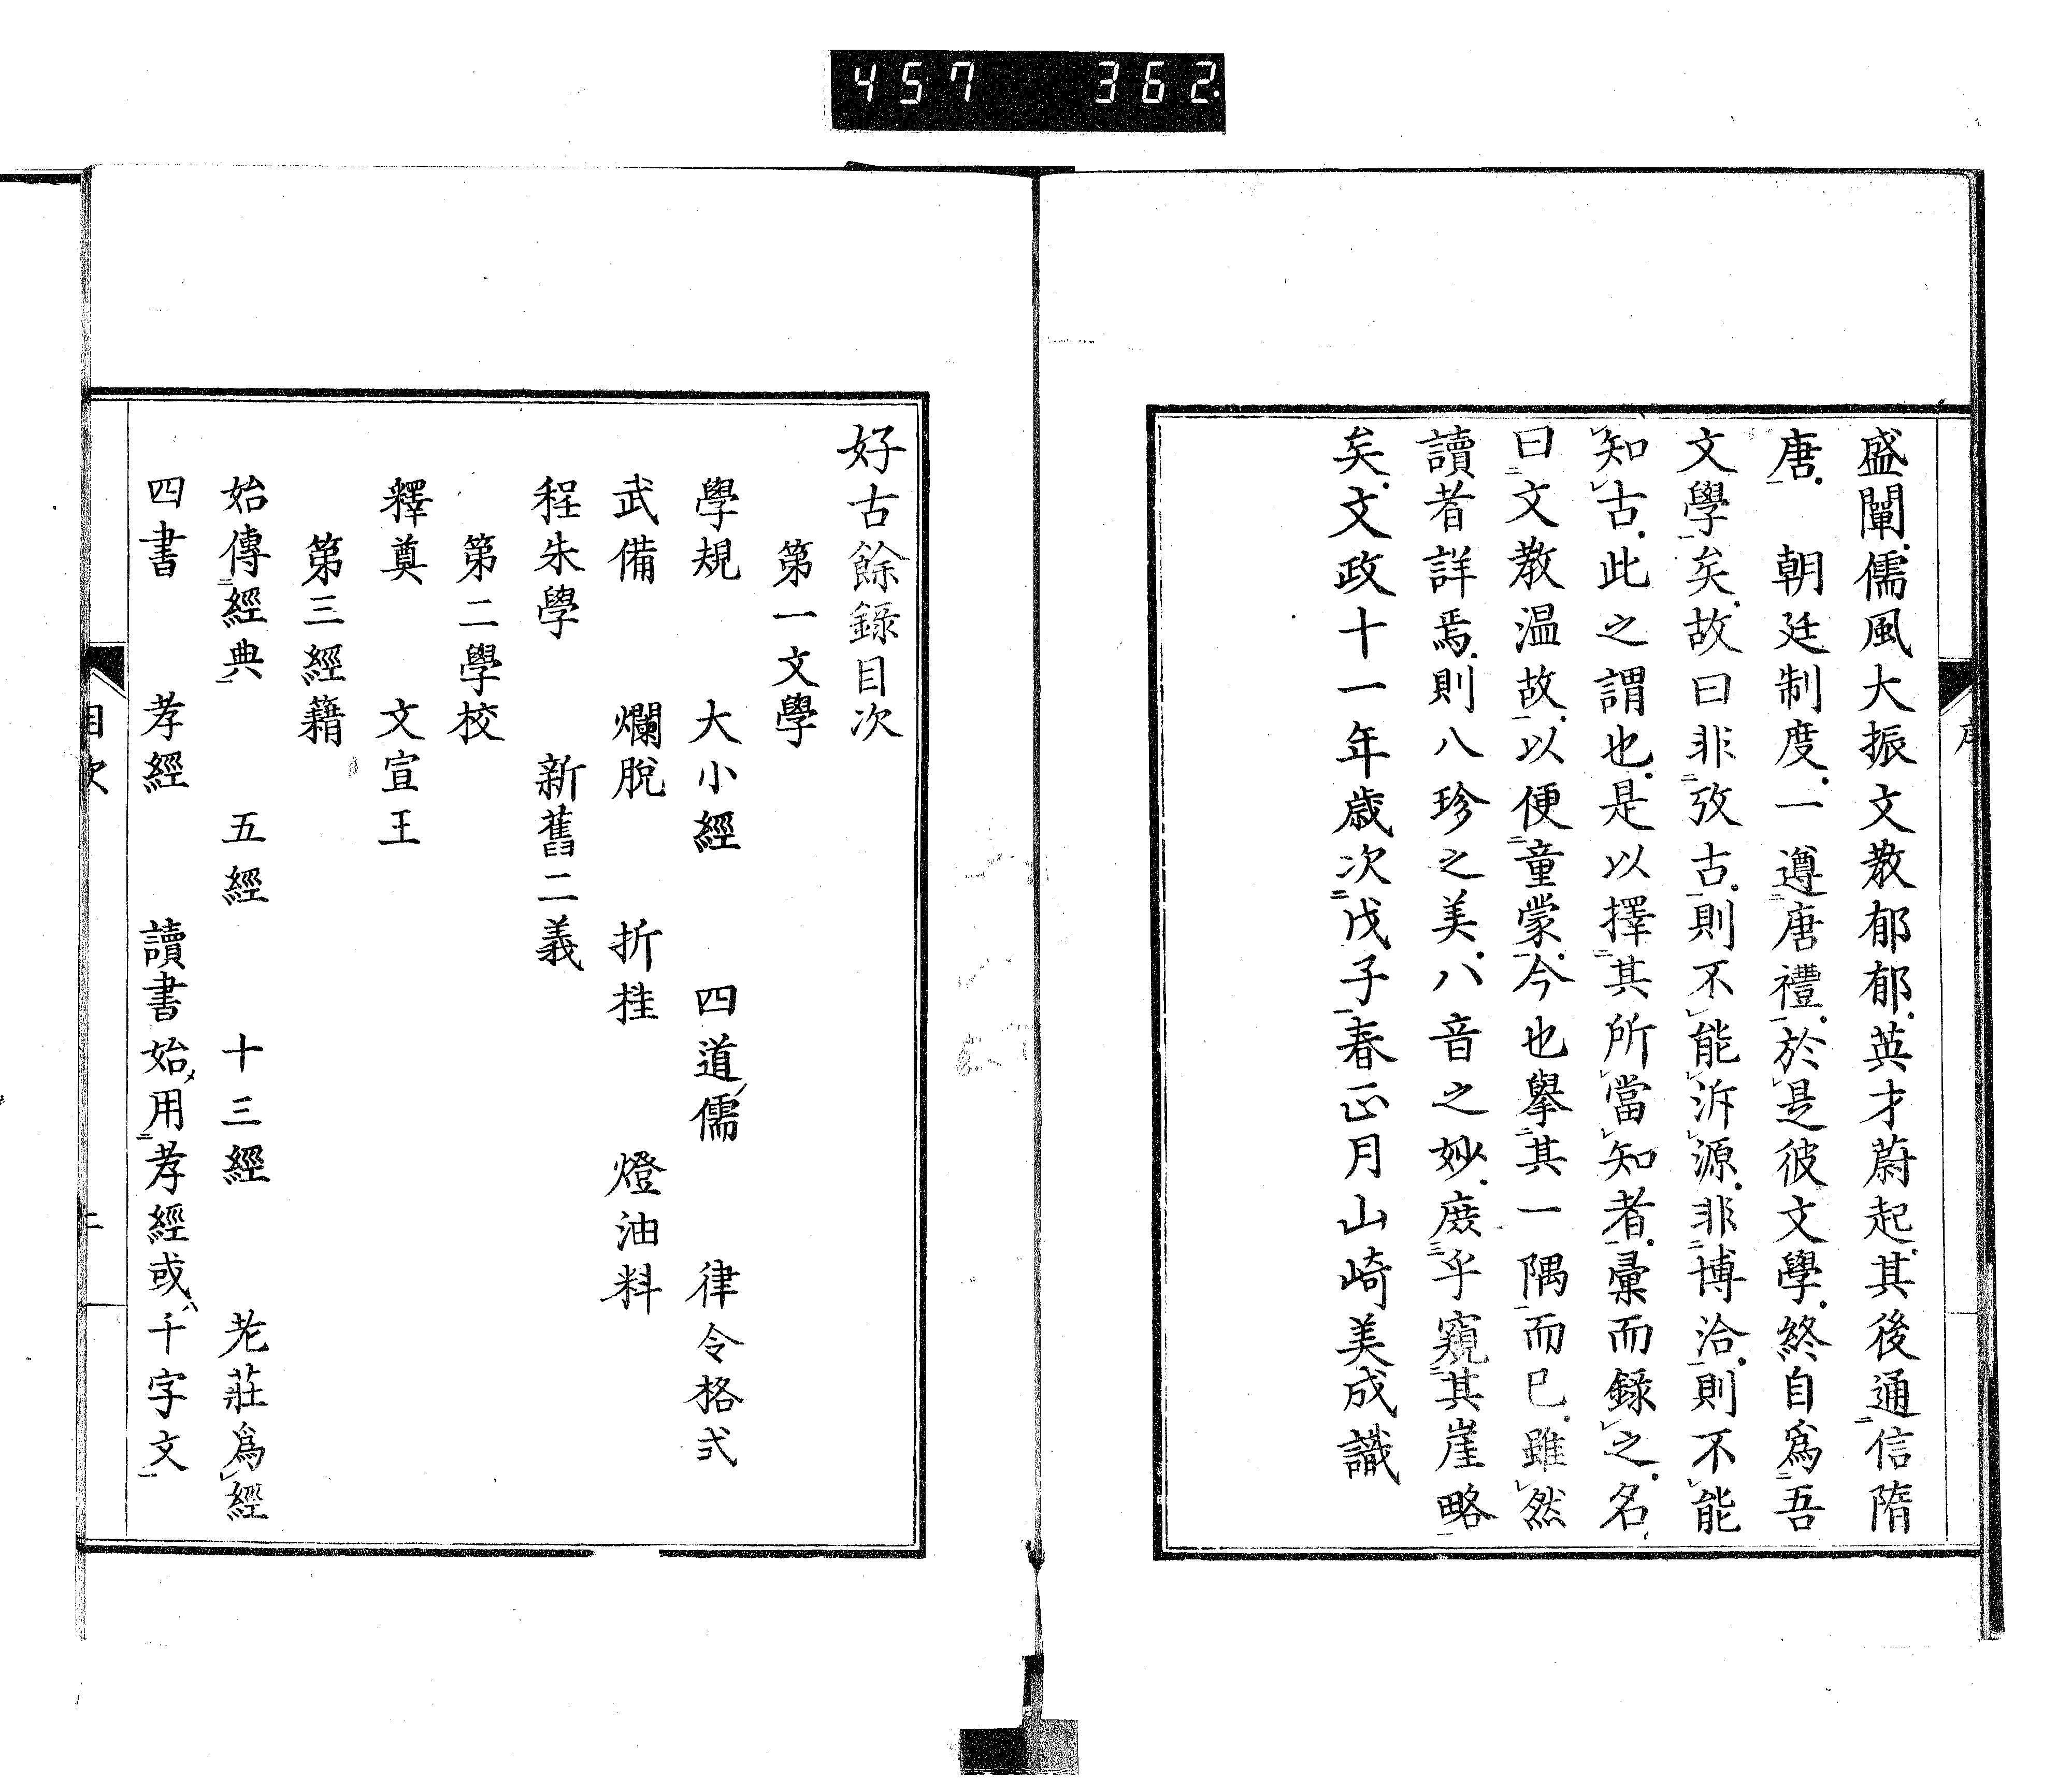 457 362
盛闡儒風大振文教郁郁英才蔚起其後通信隋
唐　朝廷制度一遵唐禮於是彼文學終自爲吾
文學矣故曰非攷古則不能泝源非博洽則不能
知古此之謂也是以擇其所當知者彙而録之名
曰文教温故以便童蒙今也擧其一隅而已雖然
讀者詳焉則八珍之美八音之妙庶乎窺其崖略
矣文政十一年歳次戊子春正月山崎美成識
好古餘録目次
第一文學
學規　大小經　四道儒　律令格式
武備　爛脱　折桂　燈油料
程朱學　新舊二義
第二學校
釋奠　文宣王
第三經籍
始傳經典　五經　十三經　老莊爲經
四書　孝經　讀書始用孝經或千字文
目次
二